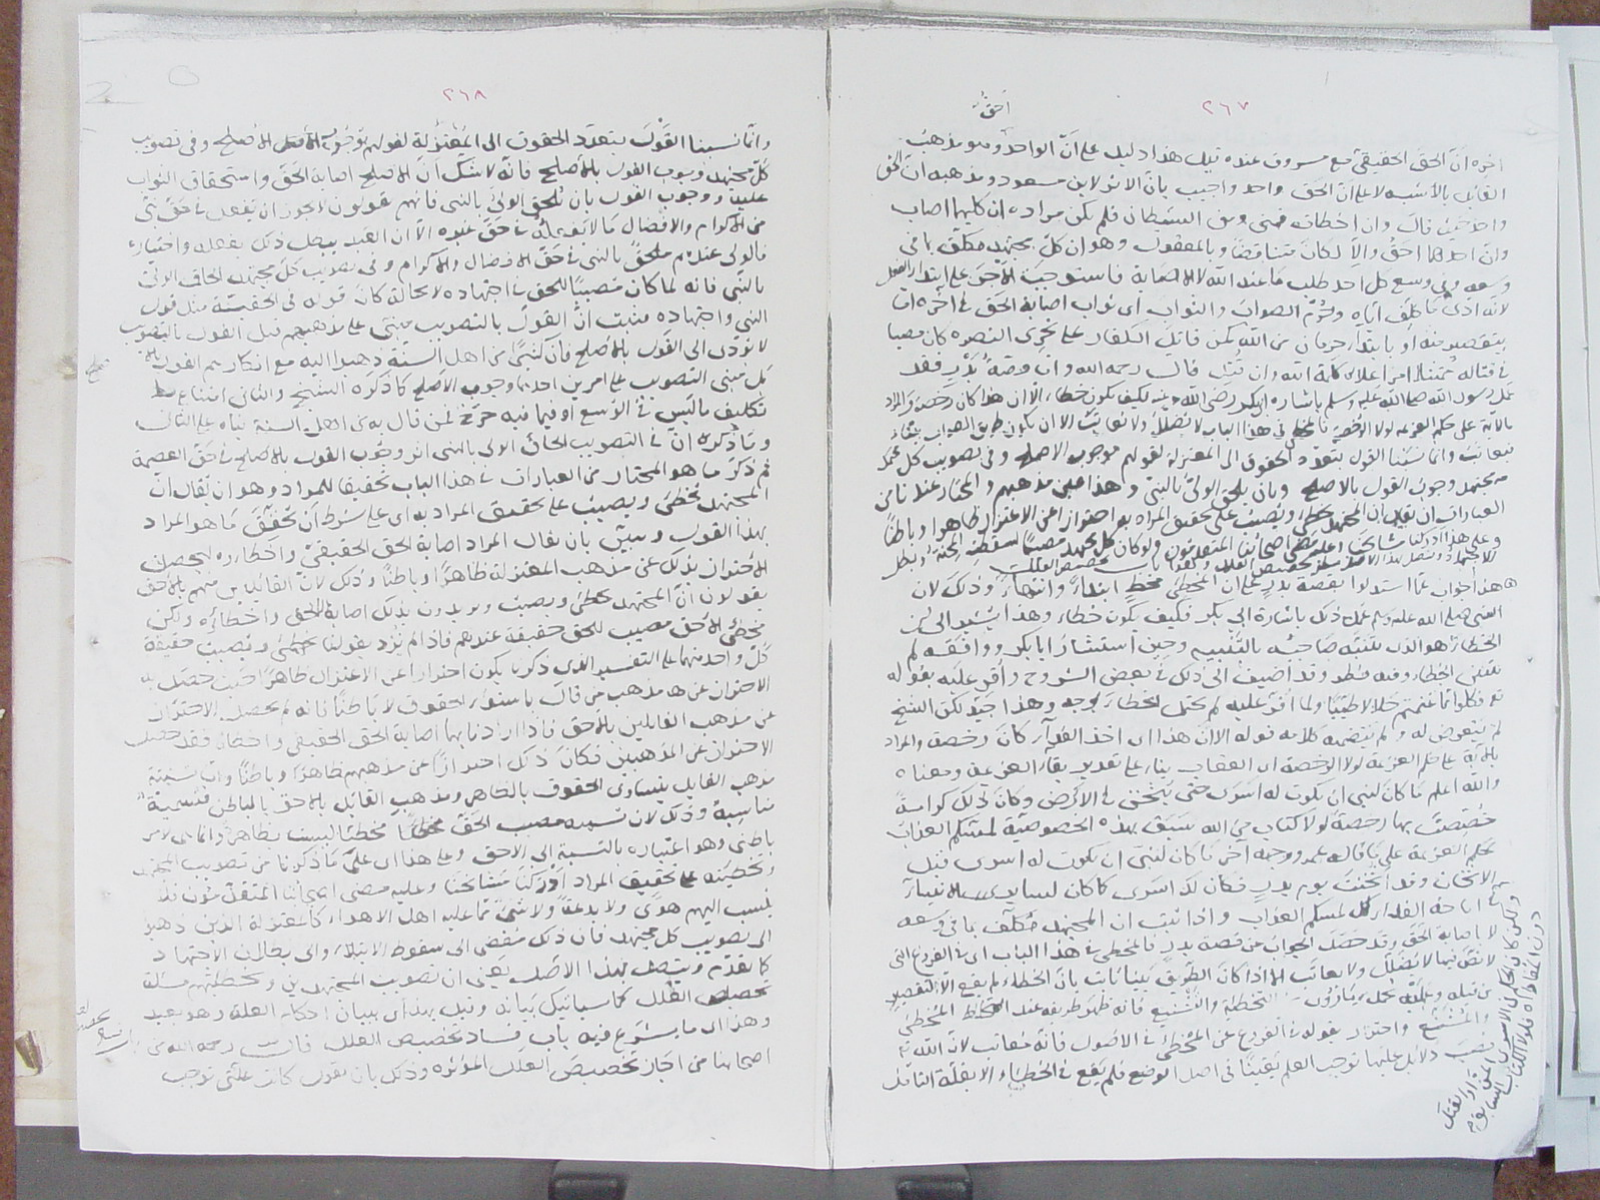 ٢٦٧
احق
اخره ان الحق الحقيقي مع مسروق عنده قيل هذا دليل على ان الواحد وهو مذهب
القائل بالأشبه لا على ان الحق واحد واجيب بان الاثر لابن مسعود ومذهبه ان الحق
واحد حيث قال وان اخطات فمني ومن الشيطان فلم يكن مراده ان كليهما اصاب
وان احدهما احق والا لكان متناقضا وبالمعقول وهو ان كل مجتهد مكلف بما في
وسعه وفي وسع كل احد طلب ما عند الله لا الاصابة فاستوجب الاجر على ابتداء الفعل
لانه ادى ما كلف اتيانه وحرم الصواب والثواب اى ثواب اصابة الحق في اخره اما
بتقصير منه او بابتداء حرمان من الله كمن قاتل الكفار على تحري النصرة كان مصيبا
في قتاله ممتثلا امر اعلاء كلمة الله وان قتل قال رحمه الله واما قصة بدر فقد
عمل رسول الله صلى الله عليه وسلم باشارة ابي بكر رضي الله عنه فكيف يكون خطاء الا ان هذا كان رخصة والمراد
بالآية على حكم العزيمة لولا الرخصة فالمخطي في هذا الباب لا يضلل ولا يعاتب الا ان يكون طريق الصواب بينا
فيعاتب وانما نسبنا القول بتعدد الحقوق الى المعتزلة لقولهم بوجوب الاصلح وفي تصويب كل مجتهد
وجوب القول بالاصلح وبان يلحق الولي بالنبي وهذا عين مذهبهم والمختار عندنا من
العبارات ان يقال ان المجتهد يخطي ويصيب على تحقيق المراد به احترازا عن الاعتزال ظاهرا وباطنا
وعلى هذا ادركنا مشايخنا وعليه مضى اصحابنا المتقدمون ولو كان كل مجتهد مصيبا لسقطت المحنة وبطل
الاجتهاد ويتصل بهذا الاصل مسئلة تخصيص العلل
هذا جواب عما استدلوا بقصة بدر على ان المخطي مخط ابتداء وانتهاء وذلك لان
النبي صلى الله عليه وسلم عمل ذلك باشارة ابي بكر فكيف يكون خطاء وهذا يشير الى ان
الخطاء هو الذى يتنبه صاحبه بالتنبيه وحين استشار ابا بكر ووافقه لم
يتعين الخطاء وفيه نظر وقد اضيف الى ذلك في بعض الشروح واقر عليه بقوله
تع فكلوا مما غنمتم حلالا طيبا ولما اقر عليه لم يحتمل الخطاء بوجه وهذا جيد لكن الشيخ
لم يتعرض له ولم يتضمنه كلامه قوله الا ان هذا اى اخذ الفداء كان رخصة والمراد
بالآية على حكم العزيمة لولا الرخصة اى العقاب بناء على تقدير بقاء العزيمة ومعناه
والله اعلم ما كان لنبي ان يكون له اسرى حتى يثخن في الارض وكان ذلك كرامة
خصصت بها رخصة لولا كتاب من الله سبق بهذه الخصوصية لمسكم العذاب
بحكم العزيمة على ما قاله عمر ووجه آخر ما كان لنبي ان يكون له اسرى قبل
الاثخان وقد اثخنت يوم بدر فكان لك اسرى كما كان لسائر الانبياء
اباحة الفداء لمسكم العذاب واذا ثبت ان المجتهد مكلف بما في وسعه
لا اصابة الحق وقد حصل الجواب عن قصة بدر فالمخطي في هذا الباب اى في الفروع التي
لا نص فيها لا يضلل ولا يعاتب الا اذا كان الطريق بينا بان الخطاء لم يقع الا لتقصير
من قبله وعليه يحمل التخطئة والتشنيع فانه ظهر طريقه عند المخطئ
والمشنع واحترز بقوله في الفروع عن المخطئ في الاصول فانه معاتب لان الله تع
نصب دلايل عليها توجب العلم يقينا في اصل الوضع فلم يقع في الخطاء الا بقلة التامل
٢٦٨
وانما نسبنا القول بتعدد الحقوق الى المعتزلة لقولهم بوجوب الاصلح وفي تصويب
كل مجتهد وجوب القول بالاصلح فانه لا شك ان الاصلح اصابة الحق واستحقاق الثواب
عليه ووجوب القول بان يلحق الولي بالنبي فانهم يقولون لا يجوز ان يفعل في حق نبي
من الاكرام والافضال ما لا يفعله في حق غيره الا ان العبد يبطل ذلك بفعله واختياره
فالولي عندهم ملحق بالنبي في حق الافضال والاكرام وفي تصويب كل مجتهد الحاق الولي
بالنبي فانه لما كان مصيبا للحق في اجتهاده لا محالة كان قوله في الحقية مثل قول
النبي واجتهاده فثبت ان القول بالتصويب مبني على مذهبهم قيل القول بالتصويب
لا يؤدى الى القول بالاصلح فان كثيرا من اهل السنة ذهبوا اليه مع انكارهم القول بالاصلح
بل مبنى التصويب على امرين احدهما وجوب الاصلح كما ذكره الشيخ والثاني امتناع
تكليف ما ليس في الوسع او فيما فيه حرج فمن قال به من اهل السنة بناه على الثاني
وما ذكره ان في التصويب الحاق الولي بالنبي اثر وجوب القول بالاصلح في حق العصمة
ثم ذكر ما هو المختار من العبارات في هذا الباب تحقيقا للمراد وهو ان يقال ان
المجتهد يخطئ ويصيب على تحقيق المراد به اى على شرط ان تحقق ما هو المراد
بهذا القول ويبين بان يقال المراد اصابة الحق الحقيقي واخطاؤه ليحصل
الاحتراز بذلك عن مذهب المعتزلة ظاهرا وباطنا وذلك لان القائلين منهم بالاحق
يقولون ان المجتهد يخطئ ويصيب ويريدون بذلك اصابة الحق واخطاؤه ولكن
مخطئ الاحق مصيب للحق حقيقة عندهم فاذا لم نرد بقولنا يخطئ ويصيب حقيقة
كل واحد منهما على التفسير الذى ذكرنا يكون احترازا عن الاعتزال ظاهرا حيث حصل به
الاحتراز عن مذهب من قال باستواء الحقوق لا باطنا فانه لم يحصل الاحتراز
عن مذهب القايلين بالاحق فاذا اردنا بهما اصابة الحق الحقيقي واخطاؤه فقد حصل
الاحتراز عن المذهبين فكان ذلك احترازا عن مذهبهم ظاهرا وباطنا
مذهب القايل بتساوى الحقوق بالظاهر ومذهب القائل بالاحق بالباطن فتسمية
مناسبة وذلك لان تسميه مصيب الحق مخطئا ليست بظاهر وانما هى لامر
باطني وهو اعتباره بالنسبة الى الاحق وعلى هذا اى على ما ذكرنا من تصويب المجتهد
وتخطئته على تحقيق المراد ادركنا مشايخنا وعليه مضى اصحابنا المتقدمون فلا
ينسب اليهم هوى ولا بدعة ولا شئ مما عليه اهل الاهواء كالمعتزلة الذين ذهبوا
الى تصويب كل مجتهد فان ذلك مفض الى سقوط الابتلاء والى بطلان الاجتهاد
كما تقدم ويتصل بهذا الاصل يعني ان تصويب المجتهدين وتخطئتهم مسئلة
تخصيص العلل كما سياتيك بيانه وقيل بهذا اى ببيان احكام العلة وهو بعيد
وهذا اى ما يشرع فيه باب فساد تخصيص العلل قال رحمه الله من
اصحابنا من اجاز تخصيص العلل المؤثرة وذلك بان يقول كانت علتي توجب